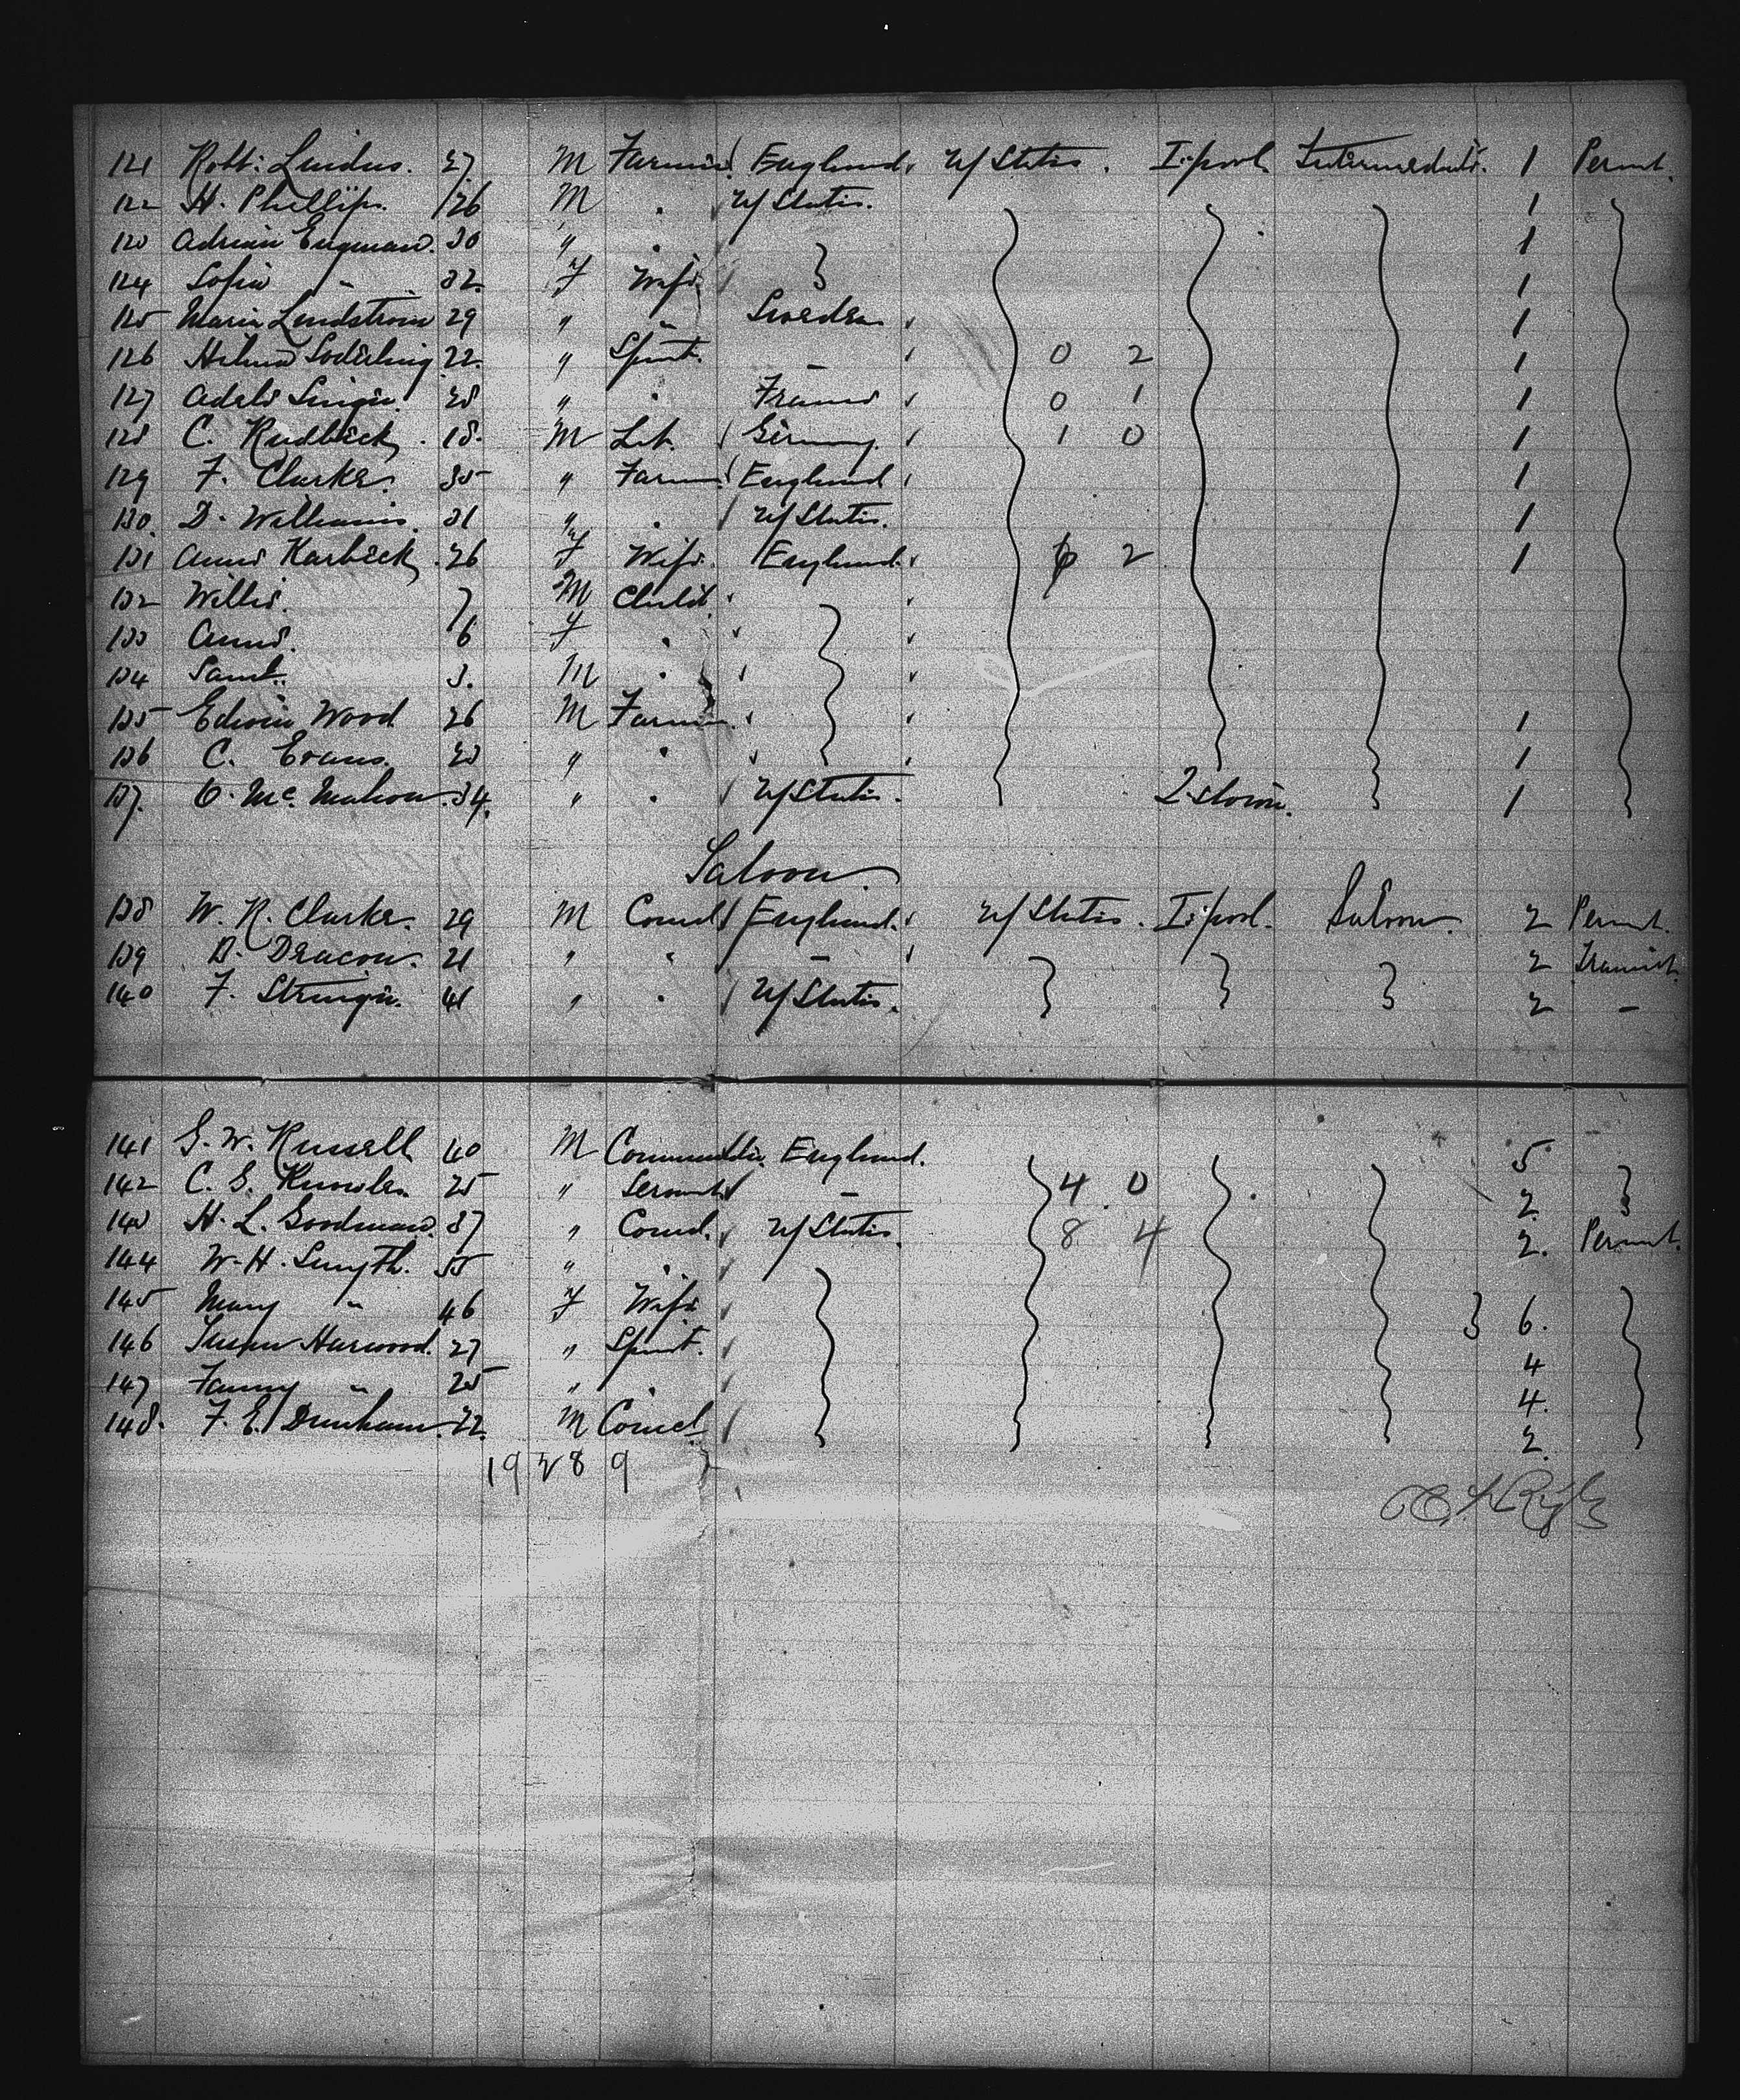 121 Robt: Lindus. 27 M Farmer England U/States. L:pool Intermediate. 1 Permt.
122 H. Phillips. 26 M . U/States. 1
123 Adrian Engman. 30 " . 1
124 Sofia " 32. F Wife 1
125 Maria Lindstrom 29 " " Sweden 1
126 Soderling 22. " Spinst. – 0 2 1
127 Adele 28 " . France 0 1 1
128 C. Rudbeck. 18. M Lab. Germany. 1 0 1
129 F. Clarke. 35 " Farmer England 1
130. D. Williams. 31 " . U/States. 1
131 Anna Karbeck. 26 F Wife. England. 2 1
132 Willie. 7 M Child.
133 Anna. 6 F .
134 Saml. 3. M .
135 Edwin Wood 26 M Farmer. 1
136 C. Evans. 23 " . 1
137. McMahon. 34. " . U/States. 1
Saloon.
138 W. R. Clarke. 29 M Comcl England. U/States. L:pool. Saloon. 2 Permt.
139 D. Deacon. 21 " " – 2 Transit
140 F. 41 " . U/States. 2 –
141 G. W. Russell 40 M England. 5
142 C. G. Knowles. 25 " Servant – 4.0 2
143 H. L. Goodman. 37 " Comcl. U/States. 8 4 2. Permt.
144 W. H. Smyth. 55 " .
145 Mary " 46 F Wife 6.
146 Susan Harwood. 27 " Spinst. 4
147 Fanny " 25 " . 4.
148. F. E. Dunham. 22. M Comcl 2
19 28 9